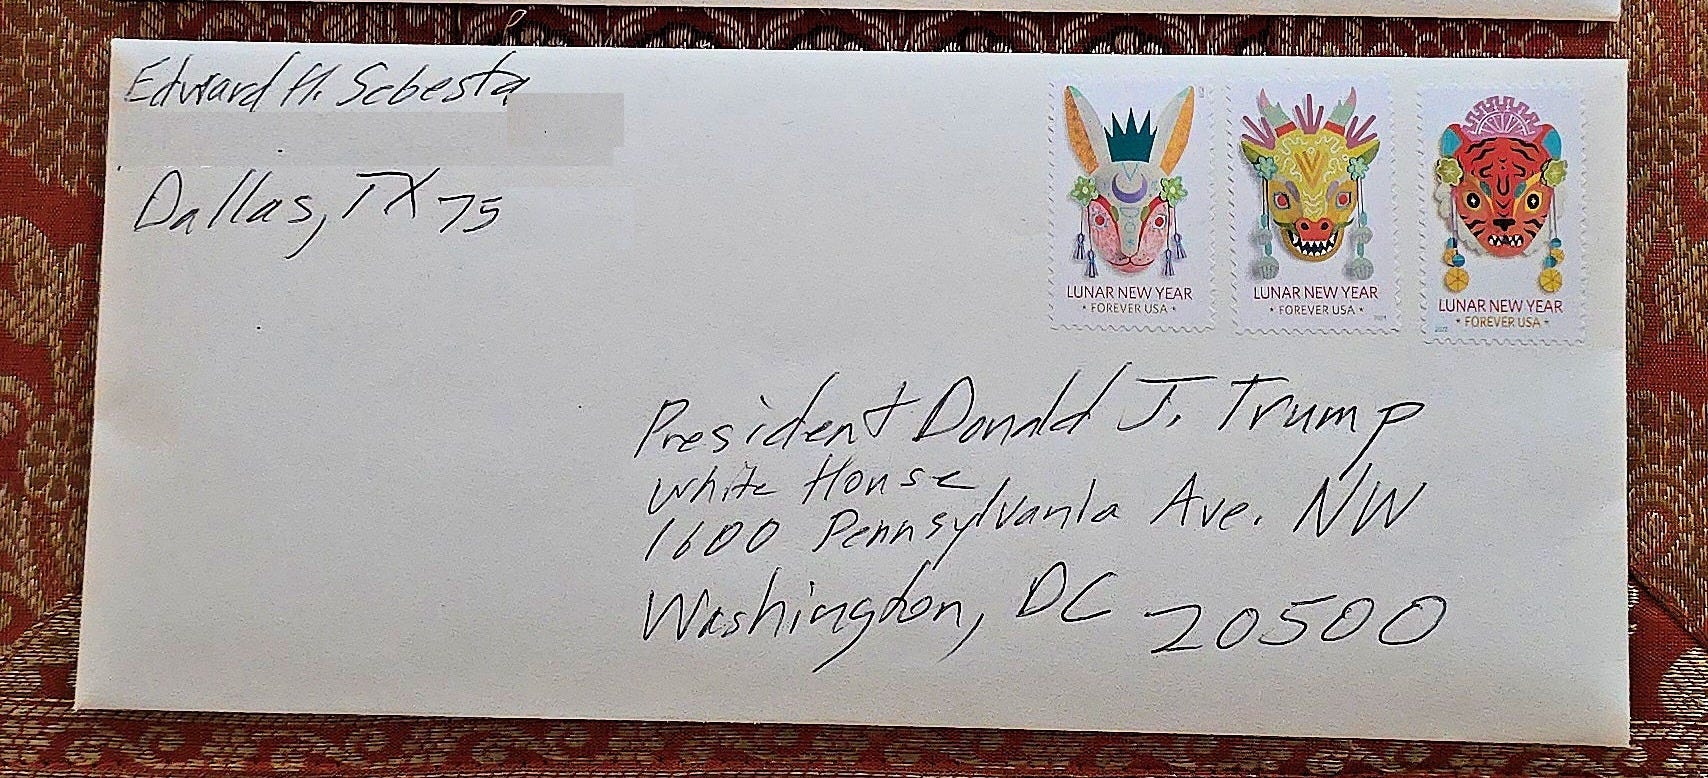 Edward H. Sebesta
Dallas, TX 75
LUNAR NEW YEAR
* FOREVER USA *
LUNAR NEW YEAR
* FOREVER USA *
2021
LUNAR NEW YEAR
* FOREVER USA *
2022
President Donald J. Trump
White House
1600 Pennsylvania Ave. NW
Washington, DC 20500